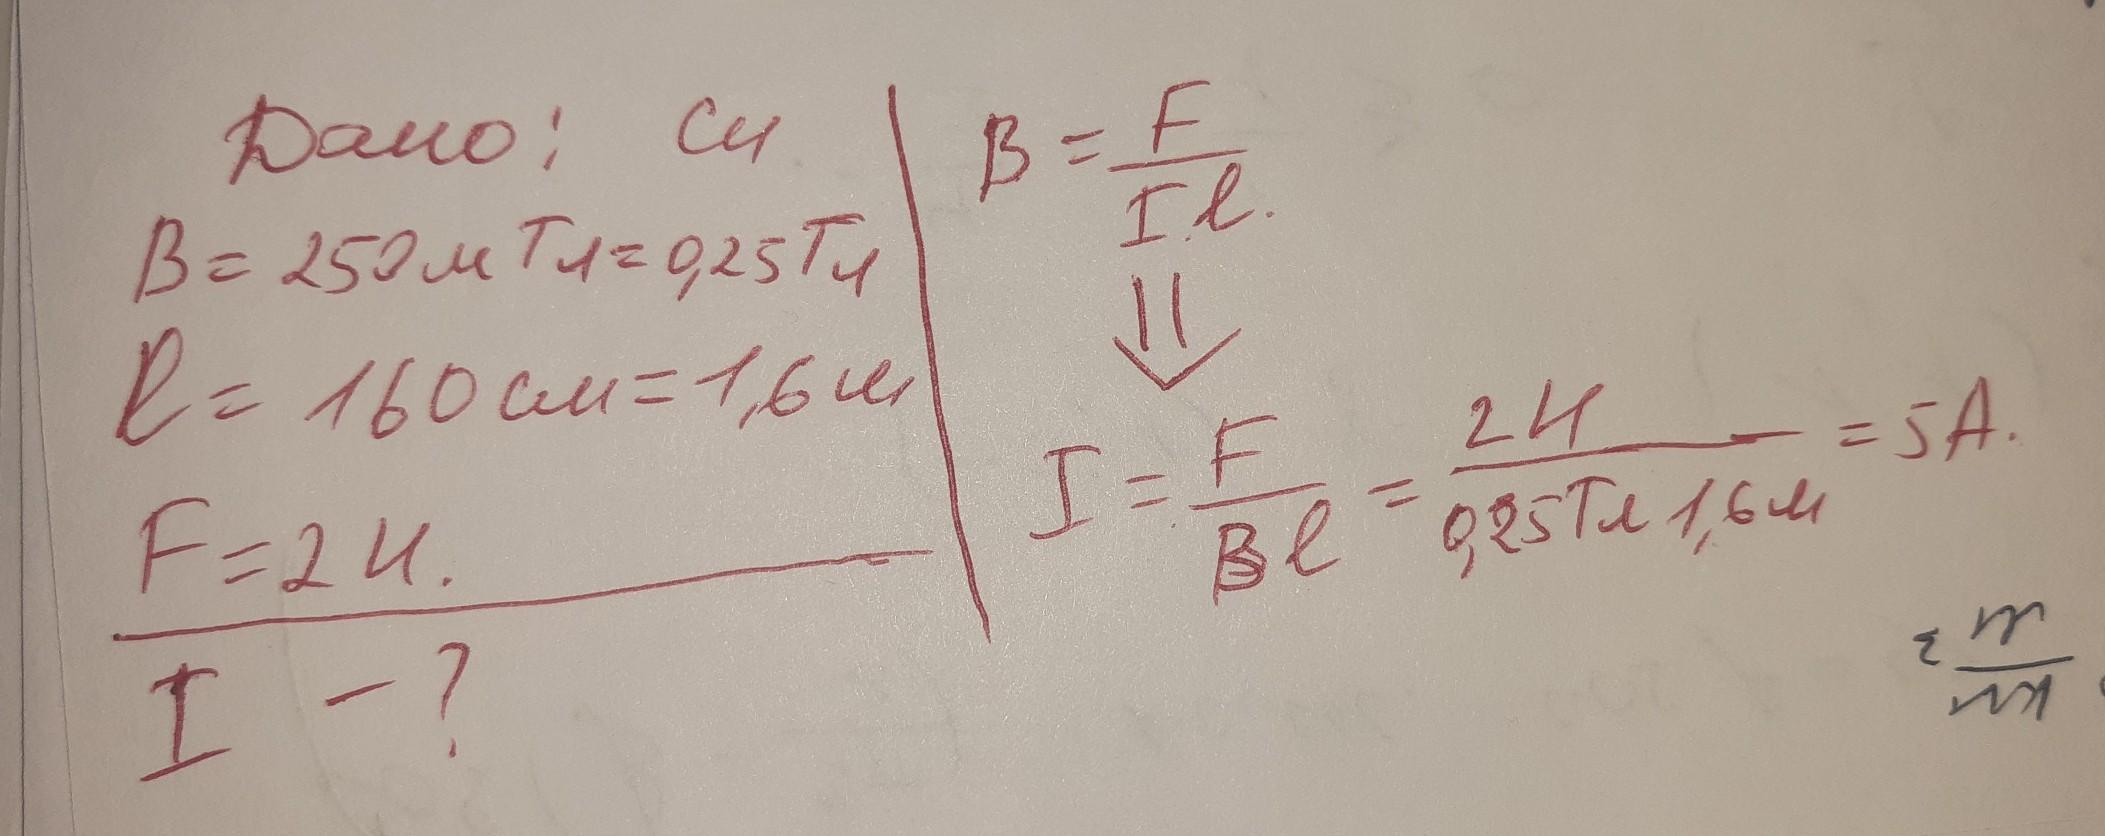 Дано: Си
B = 250 мТл = 0,25 Тл
l = 160 см = 1,6 м
F = 2 Н.
I - ?
B = F / I l.
⇓
I = F / B l = 2 Н / 0,25 Тл 1,6 м = 5 А.